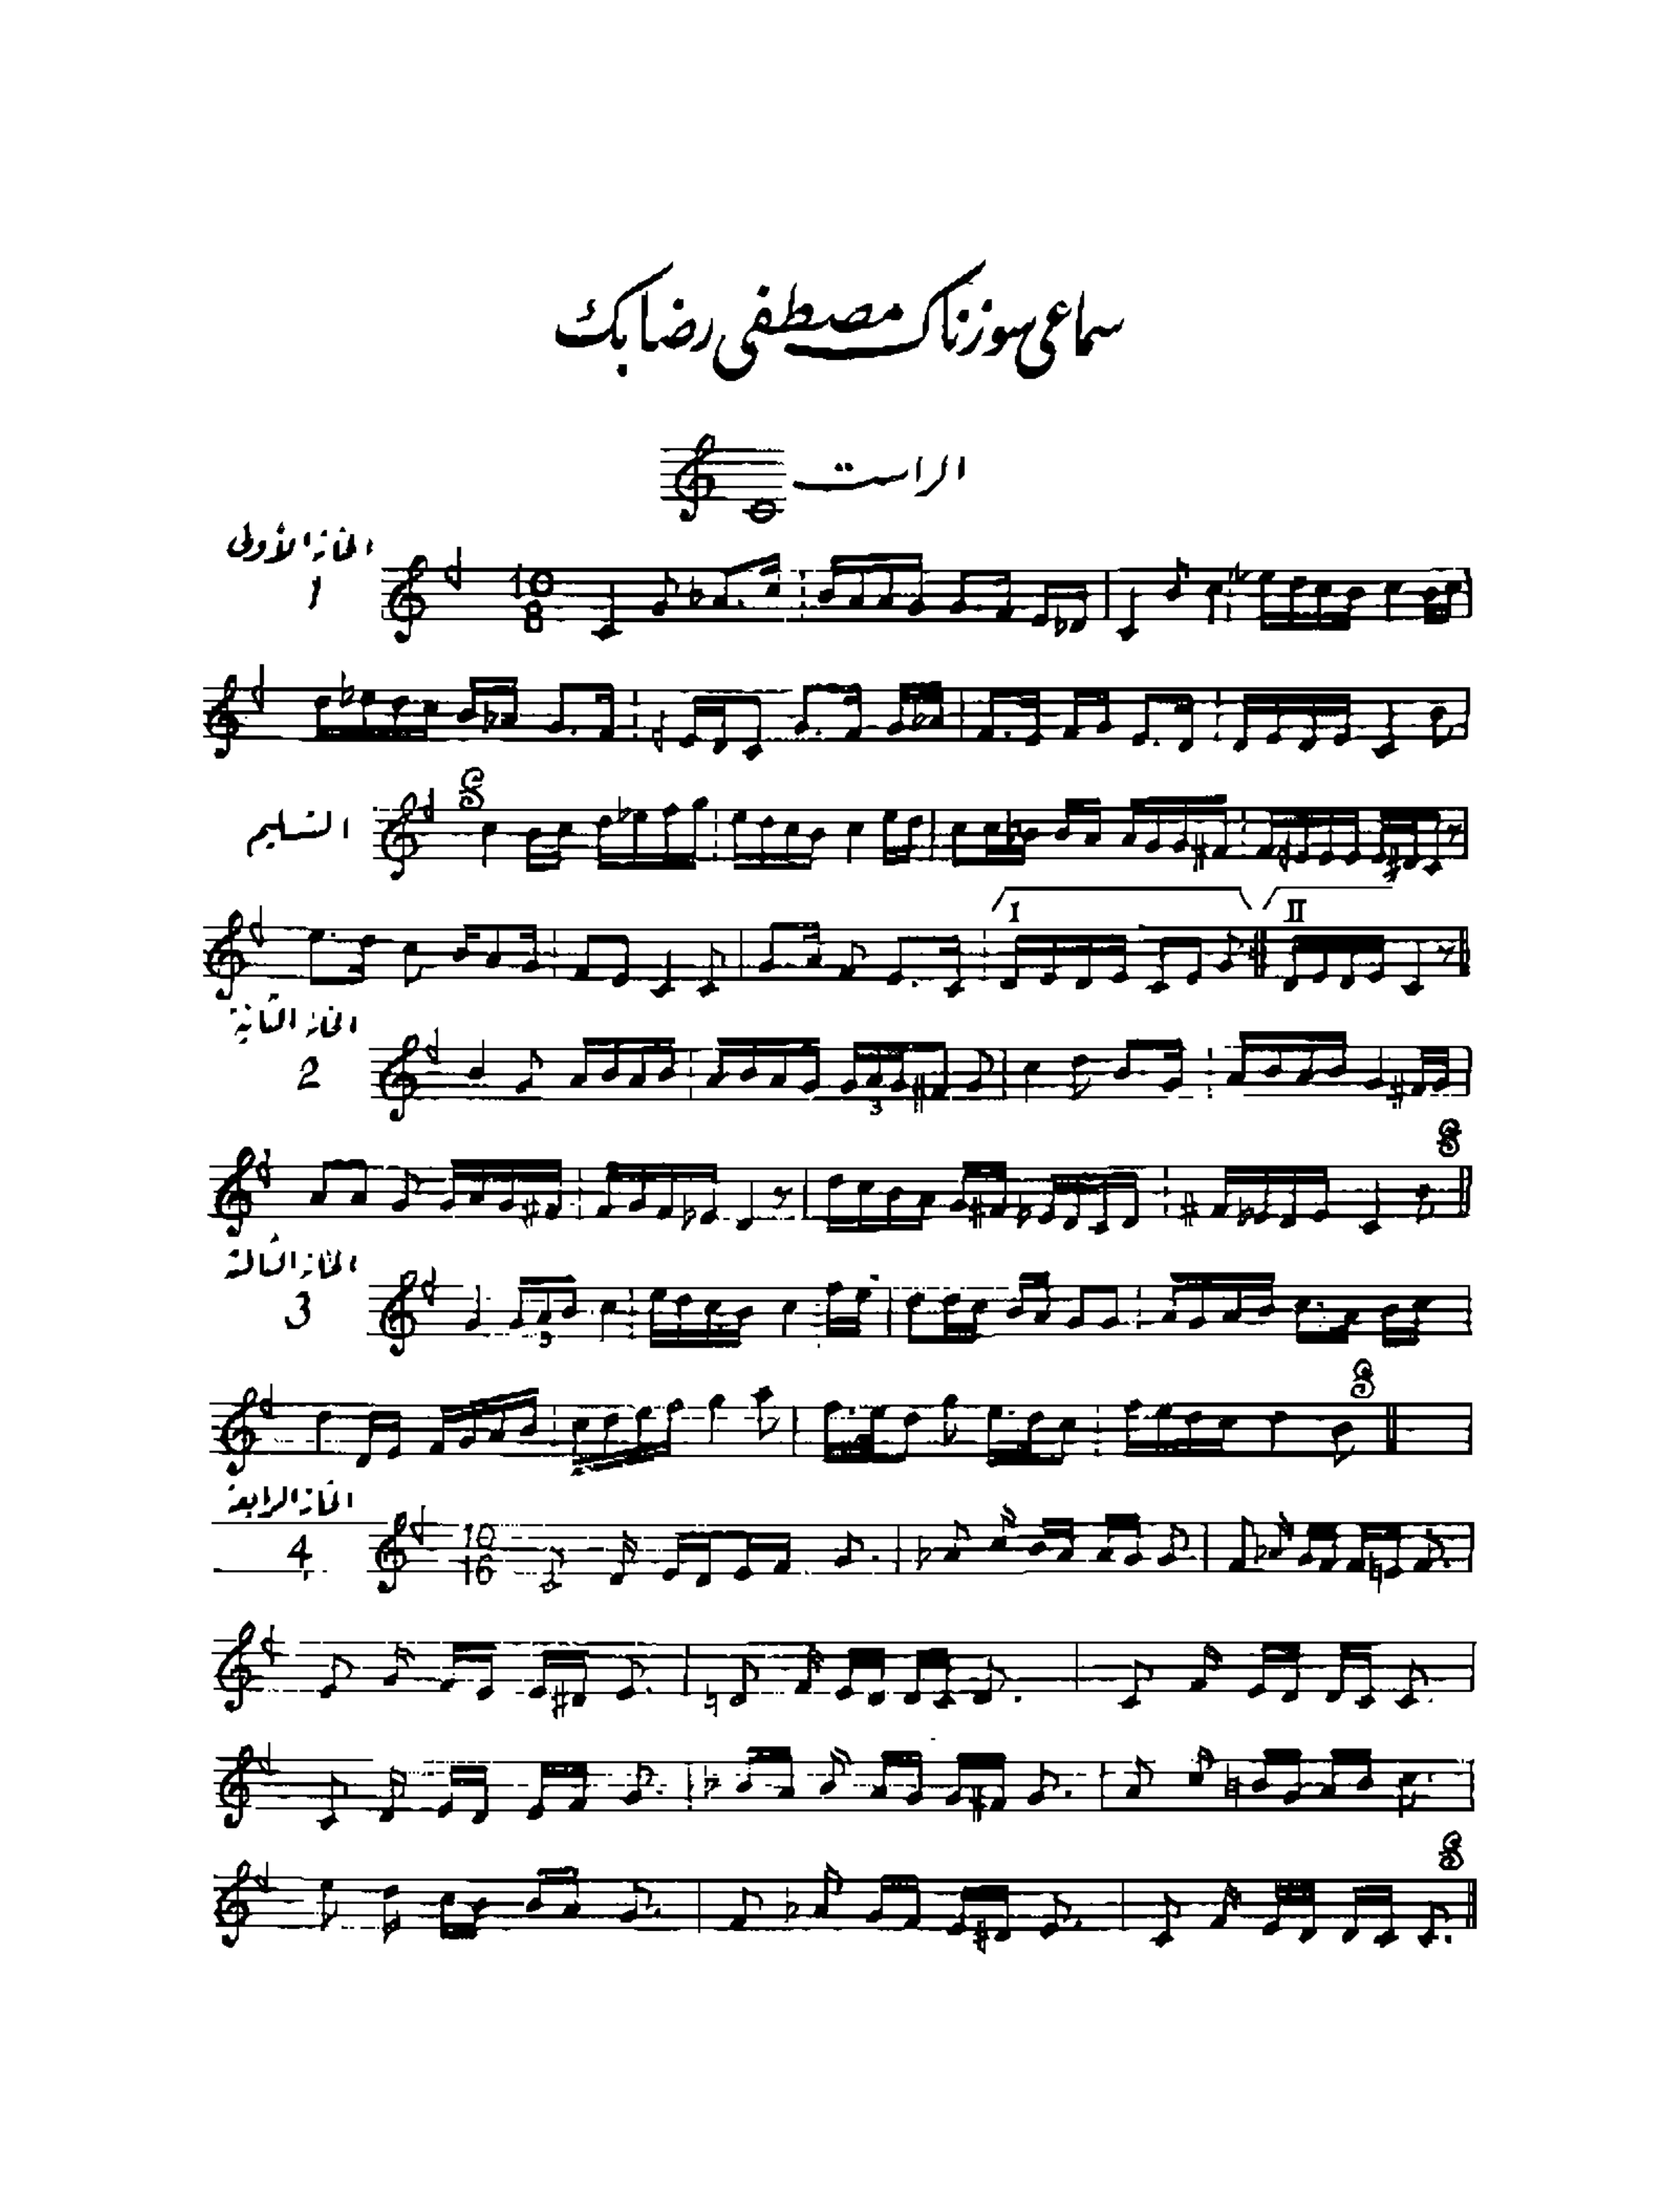 سماعي سوزناك مصطفى رضا بك
الراست
الخانة الأولى
1
10
8
التسليم
I
II
الخانة الثانية
2
3
الخانة الثالثة
3
3
الخانة الرابعة
4
10
16